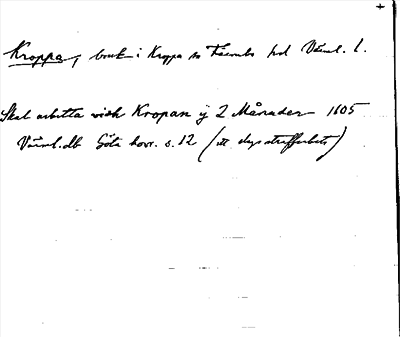 Kroppa, bruk i Kroppa sn Färnebo hd Värml. l.
Skal arbetta widh Kropan ÿ 2 Månader 1605
Värml. db Göta hovr. s. 12 (ett slags straffarbete)